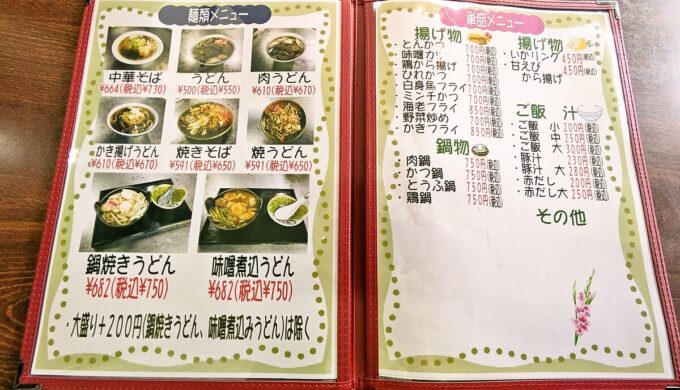 麺類メニュー
中華そば
¥664(税込¥730)
うどん
¥500(税込¥550)
肉うどん
¥610(税込¥670)
かき揚げうどん
¥610(税込¥670)
焼きそば
¥591(税込¥650)
焼うどん
¥591(税込¥650)
鍋焼きうどん
¥682(税込¥750)
味噌煮込うどん
¥682(税込¥750)
・大盛り+200円(鍋焼きうどん、味噌煮込みうどん)は除く
単品メニュー
揚げ物
・とんかつ 700円(税込)
・味噌かつ 700円(税込)
・鶏から揚げ 700円(税込)
・ひれかつ 700円(税込)
・白身魚フライ 700円(税込)
・ミンチかつ 700円(税込)
・海老フライ 850円(税込)
・野菜炒め 700円(税込)
・かきフライ 850円(税込)
鍋物
・肉鍋 750円(税込)
・かつ鍋 750円(税込)
・とうふ鍋 750円(税込)
・鶏鍋 750円(税込)
揚げ物
・いかリング 450円(税込)
・甘えび 450円(税込)
から揚げ
ご飯 汁
・ご飯 小 200円(税込)
・ご飯 中 250円(税込)
・ご飯 大 300円(税込)
・豚汁 230円(税込)
・豚汁 大 280円(税込)
・赤だし 200円(税込)
・赤だし大 250円(税込)
その他